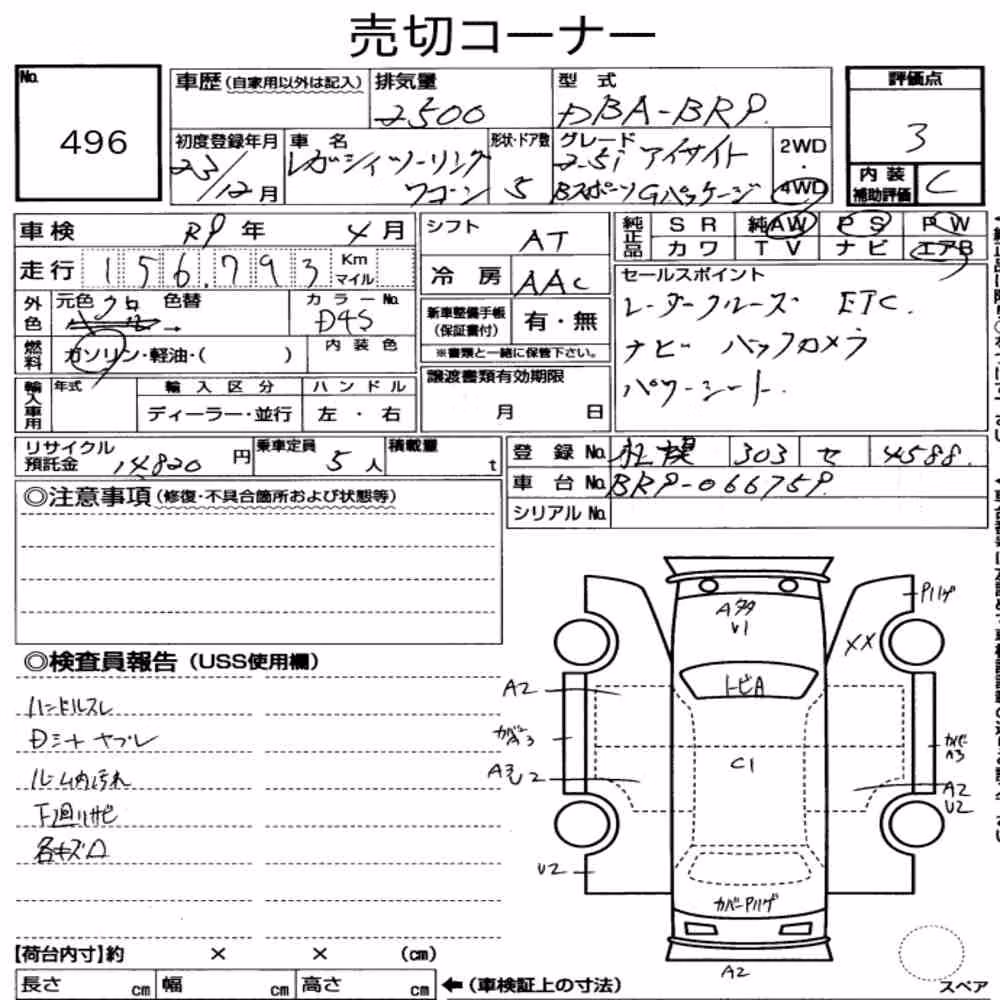 売切コーナー
No.
496
車歴 (自家用以外は記入)
排気量
2500
型 式
DBA-BRP
評価点
3
初度登録年月
23/12月
車 名
レガシィツーリング
ワゴン
形状・ドア数
5
グレード
2.5i アイサイト
BスポーツGパッケージ
2WD
・
4WD
内 装
補助評価
C
車検
年 4月
走行
156,793
Km
マイル
外色
元色
クロ
色替
→
カラーNo.
D4S
燃料
ガソリン・軽油・( )
内 装 色
輸入車用
年式
輸 入 区 分
ディーラー・並行
ハ ン ド ル
左 ・ 右
シフト
AT
冷 房
AAC
新車整備手帳
(保証書付)
有・無
※書類と一緒に保管下さい。
譲渡書類有効期限
月 日
純正品
S R
純AW
P S
P W
カワ
T V
ナ ビ
エアB
セールスポイント
レーダークルーズ ETC.
ナビ バックカメラ
パワーシート.
リサイクル
預託金
14820 円
乗車定員
5 人
積載量
t
登 録 No.
札幌 303 せ 4588
車 台 No.
シリアル No.
◎注意事項 (修復・不具合箇所および状態等)
◎検査員報告 (USS使用欄)
ハンドルスレ
Dシート ヤブレ
ルーム内汚れ
下廻りサビ
各キズ凹
A多
U1
Pハゲ
XX
トビA
A2
カバーA3
C1
カバーA3
A2
U2
U2
カバーPハゲ
A2
スペア
【荷台内寸】約 × × (cm)
長さ cm 幅 cm 高さ cm ←(車検証上の寸法)